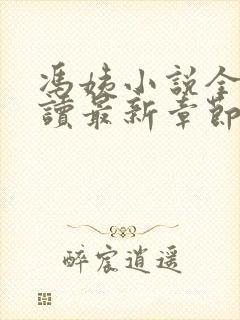 馮姨小說全
讀最新章節
醉宸逍遥